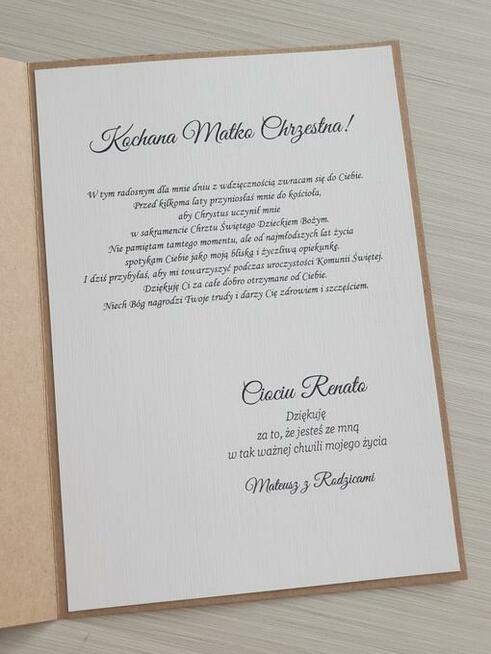 Kochana Matko Chrzestna!
W tym radosnym dla mnie dniu z wdzięcznością zwracam się do Ciebie.
Przed kilkoma laty przyniosłaś mnie do kościoła,
aby Chrystus uczynił mnie
w sakramencie Chrztu Świętego Dzieckiem Bożym.
Nie pamiętam tamtego momentu, ale od najmłodszych lat życia
spotykam Ciebie jako moją bliską i życzliwą opiekunkę.
I dziś przybyłaś, aby mi towarzyszyć podczas uroczystości Komunii Świętej.
Dziękuję Ci za całe dobro otrzymane od Ciebie.
Niech Bóg nagrodzi Twoje trudy i darzy Cię zdrowiem i szczęściem.
Ciociu Renato
Dziękuję
za to, że jesteś ze mną
w tak ważnej chwili mojego życia
Mateusz z Rodzicami